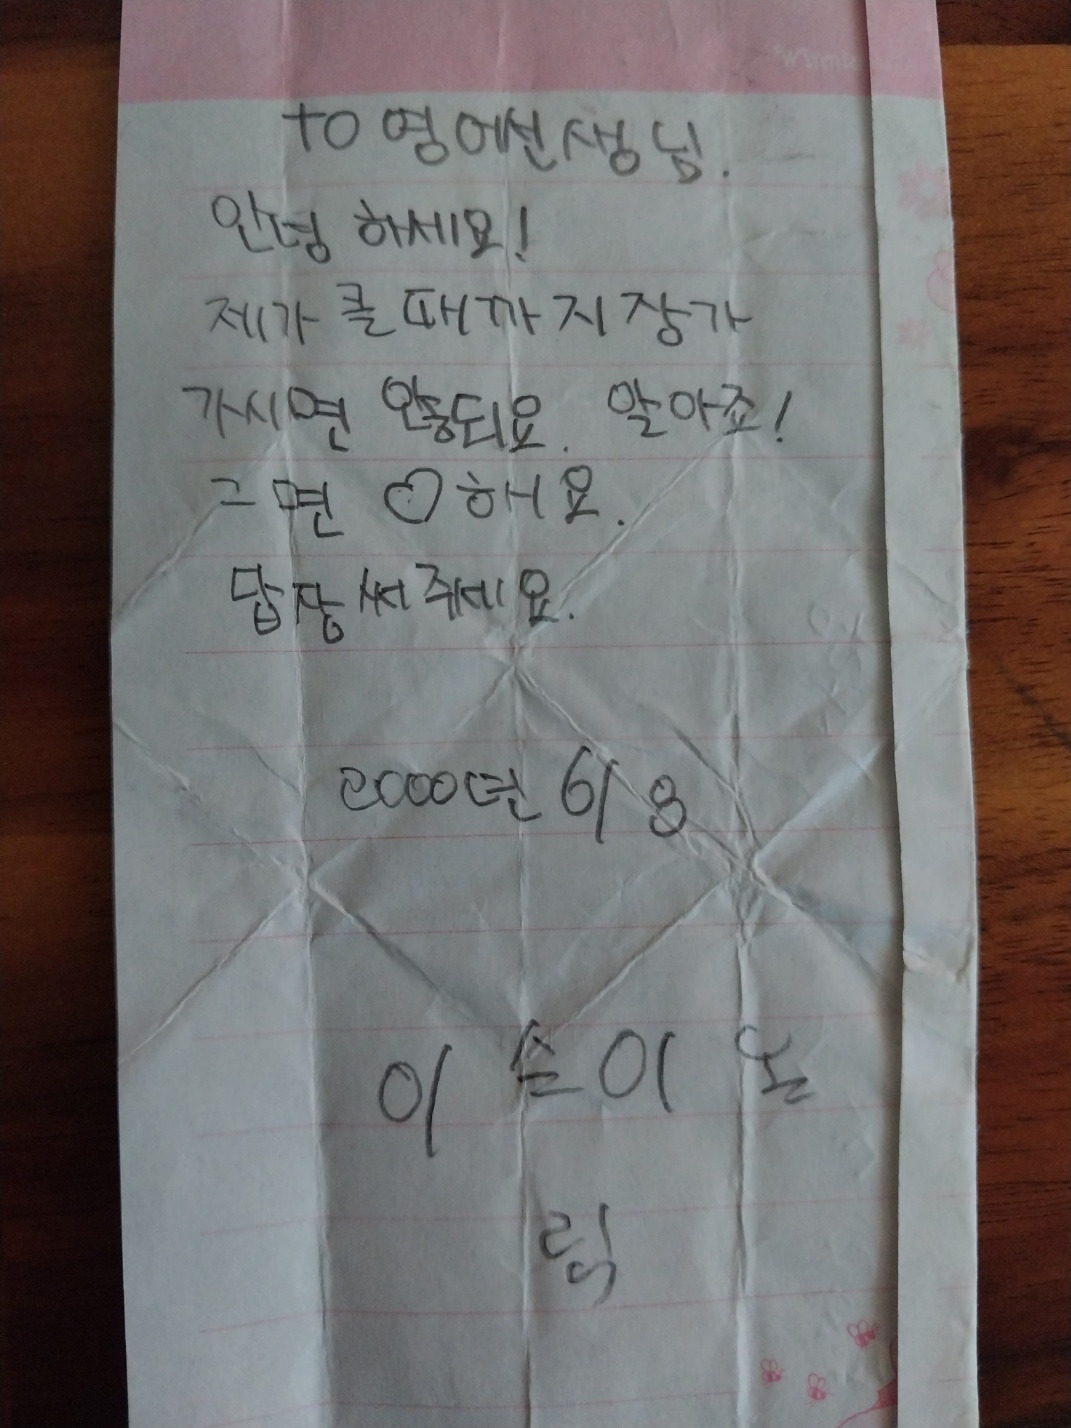 to 영어선생님.
안녕 하세요!
제가 클 때까지 장가
가시면 안됑되요. 알아죠!
그면 ♡해요.
답장 써주세요.
2000년 6/8
이 이
림